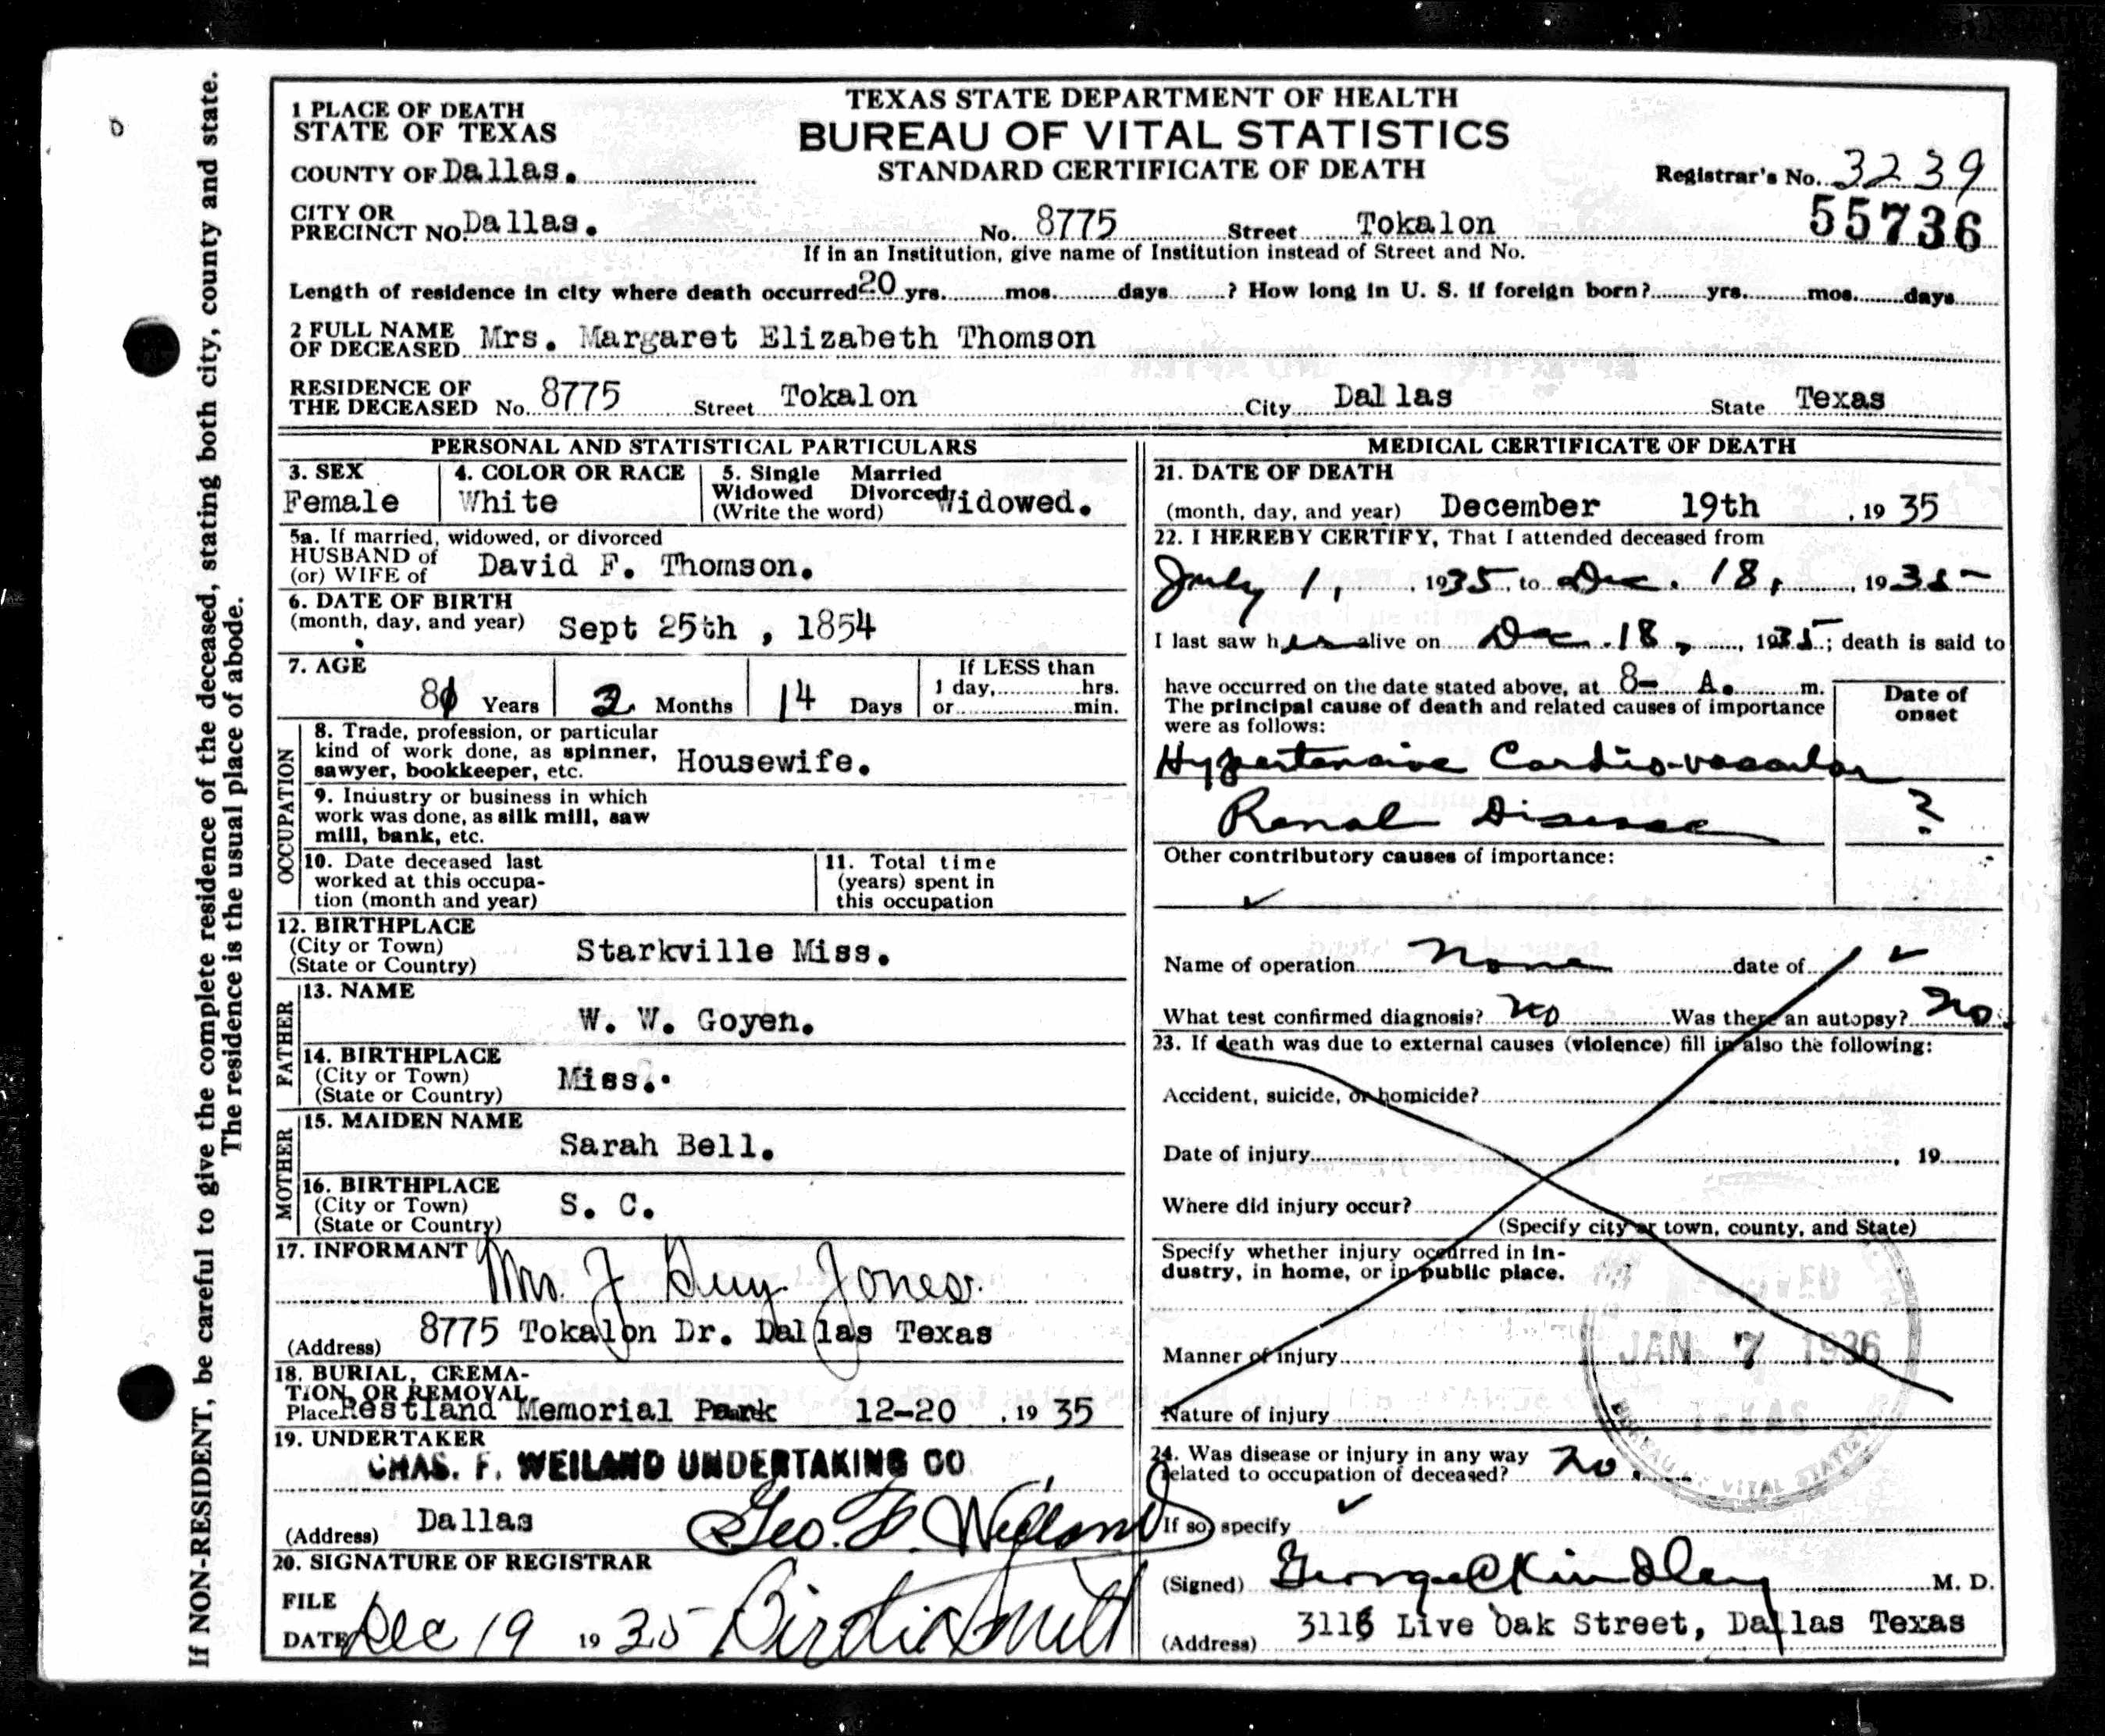 If NON-RESIDENT, be careful to give the complete residence of the deceased, stating both city, county and state.
The residence is the usual place of abode.
TEXAS STATE DEPARTMENT OF HEALTH
BUREAU OF VITAL STATISTICS
STANDARD CERTIFICATE OF DEATH
1 PLACE OF DEATH
STATE OF TEXAS
COUNTY OF Dallas.
Registrar's No. 3239
55736
CITY OR PRECINCT NO. Dallas. No. 8775 Street Tokalon
If in an Institution, give name of Institution instead of Street and No.
Length of residence in city where death occurred 20 yrs. mos. days ? How long in U. S. if foreign born? yrs. mos. days
2 FULL NAME OF DECEASED Mrs. Margaret Elizabeth Thomson
RESIDENCE OF THE DECEASED No. 8775 Street Tokalon City Dallas State Texas
PERSONAL AND STATISTICAL PARTICULARS
3. SEX
Female
4. COLOR OR RACE
White
5. Single Married
Widowed Divorced
(Write the word) Widowed.
5a. If married, widowed, or divorced
HUSBAND of
(or) WIFE of David F. Thomson.
6. DATE OF BIRTH
(month, day, and year) Sept 25th , 1854
7. AGE
81 Years 2 Months 14 Days
If LESS than
1 day, hrs.
or min.
OCCUPATION
8. Trade, profession, or particular
kind of work done, as spinner,
sawyer, bookkeeper, etc. Housewife.
9. Industry or business in which
work was done, as silk mill, saw
mill, bank, etc.
10. Date deceased last
worked at this occupa-
tion (month and year)
11. Total time
(years) spent in
this occupation
12. BIRTHPLACE
(City or Town)
(State or Country) Starkville Miss.
FATHER
13. NAME
W. W. Goyen.
14. BIRTHPLACE
(City or Town)
(State or Country) Miss.
MOTHER
15. MAIDEN NAME
Sarah Bell.
16. BIRTHPLACE
(City or Town)
(State or Country) S. C.
17. INFORMANT Mrs. J Guy Jones.
(Address) 8775 Tokalon Dr. Dallas Texas
18. BURIAL, CREMA-
TION, OR REMOVAL
Place Restland Memorial Park 12-20 , 19 35
19. UNDERTAKER
CHAS. F. WEILAND UNDERTAKING CO
(Address) Dallas Geo. F. Weiland
20. SIGNATURE OF REGISTRAR
FILE
DATE Dec 19 19 35 Birdie Smith
MEDICAL CERTIFICATE OF DEATH
21. DATE OF DEATH
(month, day, and year) December 19th , 19 35
22. I HEREBY CERTIFY, That I attended deceased from
July 1, , 1935, to Dec. 18, , 1935
I last saw her alive on Dec. 18, , 1935; death is said to
have occurred on the date stated above, at 8- A. m.
The principal cause of death and related causes of importance
were as follows:
Date of
onset
Hypertensive Cardio-vascular
Renal Disease ?
Other contributory causes of importance:
Name of operation None date of
What test confirmed diagnosis? no Was there an autopsy? no.
23. If death was due to external causes (violence) fill in also the following:
Accident, suicide, or homicide?
Date of injury , 19
Where did injury occur?
(Specify city or town, county, and State)
Specify whether injury occurred in in-
dustry, in home, or in public place.
Manner of injury
Nature of injury
JAN 7 1936
TEXAS
BUREAU OF VITAL STATISTICS
24. Was disease or injury in any way
related to occupation of deceased? No.
If so, specify
(Signed) George A Kindley M. D.
(Address) 3116 Live Oak Street, Dallas Texas